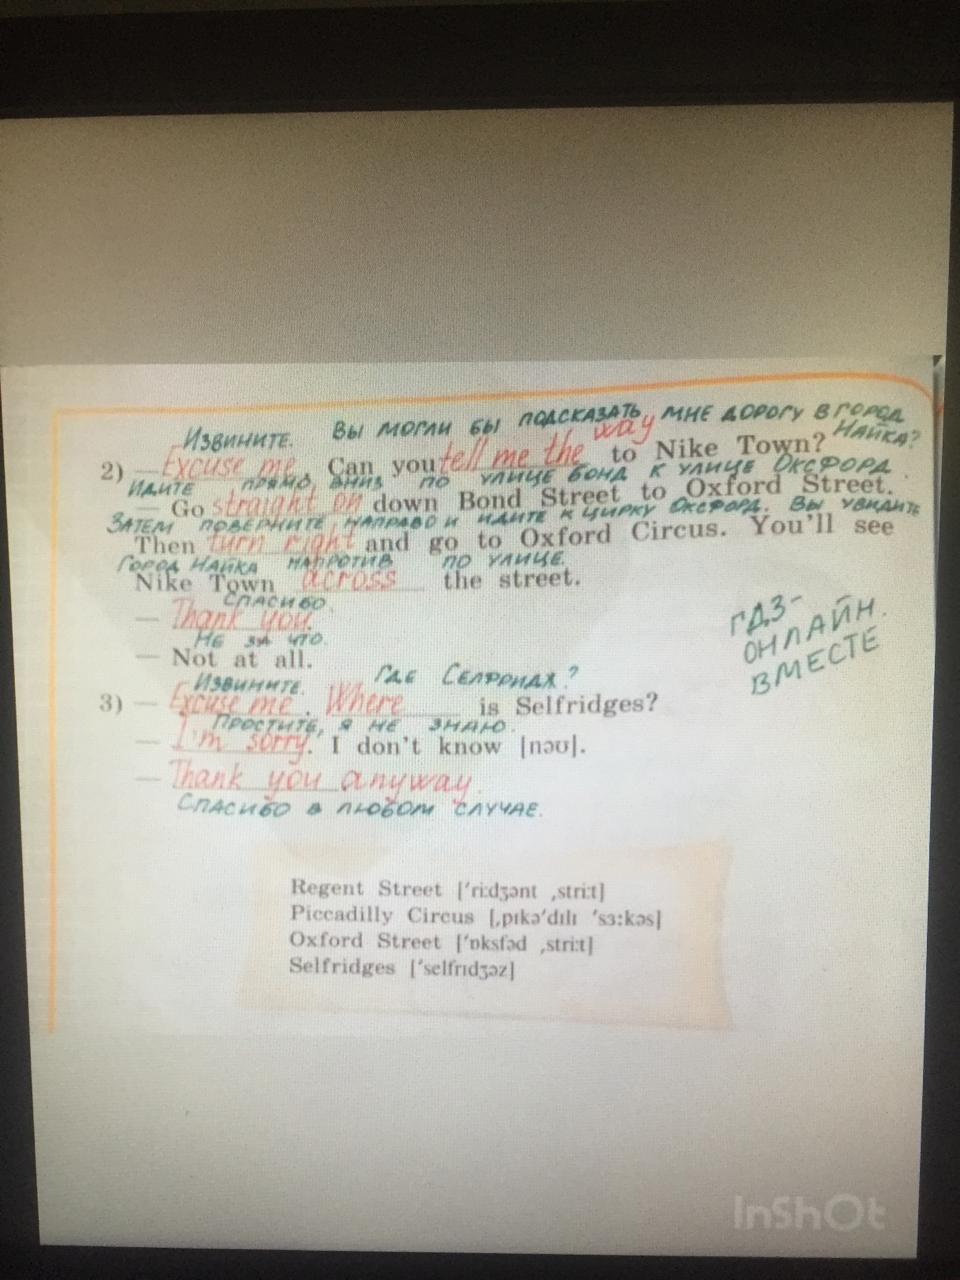 Извините. Вы могли бы подсказать, мне дорогу в город Найка?
2) — Excuse me. Can you tell me the way to Nike Town?
Идите прямо вниз по улице Бонд к улице Оксфорд.
— Go straight on down Bond Street to Oxford Street.
Затем поверните направо и идите к цирку Оксфорд. Вы увидите
Then turn right and go to Oxford Circus. You'll see
Город Найка напротив по улице.
Nike Town across the street.
Спасибо.
— Thank you.
Не за что.
— Not at all.
Извините. Где Селфридж?
3) — Excuse me. Where is Selfridges?
Простите, я не знаю.
— I'm sorry. I don't know [nəʊ].
— Thank you anyway.
Спасибо в любом случае.
ГДЗ-
ОНЛАЙН.
ВМЕСТЕ
Regent Street [ˈriːdʒənt ˌstriːt]
Piccadilly Circus [ˌpɪkəˈdɪlɪ ˈsɜːkəs]
Oxford Street [ˈɒksfəd ˌstriːt]
Selfridges [ˈselfrɪdʒəz]
InShOt